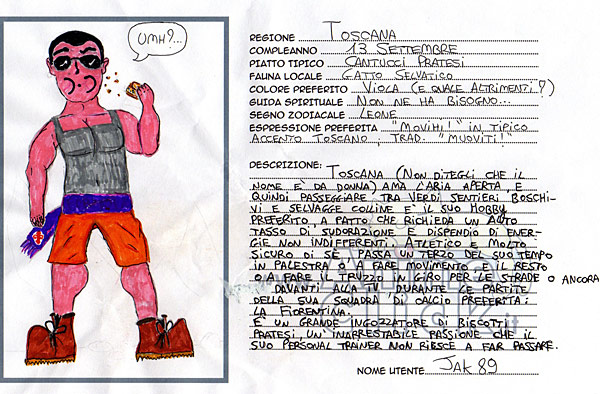 UMH?...
REGIONE TOSCANA
COMPLEANNO 13 SETTEMBRE
PIATTO TIPICO CANTUCCI PRATESI
FAUNA LOCALE GATTO SELVATICO
COLORE PREFERITO VIOLA (E QUALE ALTRIMENTI?)
GUIDA SPIRITUALE NON NE HA BISOGNO...
SEGNO ZODIACALE LEONE
ESPRESSIONE PREFERITA "MOVIHI!" IN TIPICO
ACCENTO TOSCANO, TRAD. "MUOVITI!"
DESCRIZIONE:
TOSCANA (NON DITEGLI CHE IL
NOME E' DA DONNA) AMA L'ARIA APERTA, E
QUINDI PASSEGGIARE TRA VERDI SENTIERI BOSCHI-
VI E SELVAGGE COLLINE E' IL SUO HOBBY
PREFERITO A PATTO CHE RICHIEDA UN ALTO
TASSO DI SUDORAZIONE E DISPENDIO DI ENER-
GIE NON INDIFFERENTI. ATLETICO E MOLTO
SICURO DI SÈ, PASSA UN TERZO DEL SUO TEMPO
IN PALESTRA O A FARE MOVIMENTO E IL RESTO
O A FARE IL TRUZZO IN GIRO PER LE STRADE O ANCORA
DAVANTI ALLA TV DURANTE LE PARTITE
DELLA SUA SQUADRA DI CALCIO PREFERITA:
LA FIORENTINA.
E' UN GRANDE INGOZZATORE DI BISCOTTI
PRATESI, UN'INARRESTABILE PASSIONE CHE IL
SUO PERSONAL TRAINER NON RIESCE A FAR PASSARE.
NOME UTENTE JAK 89